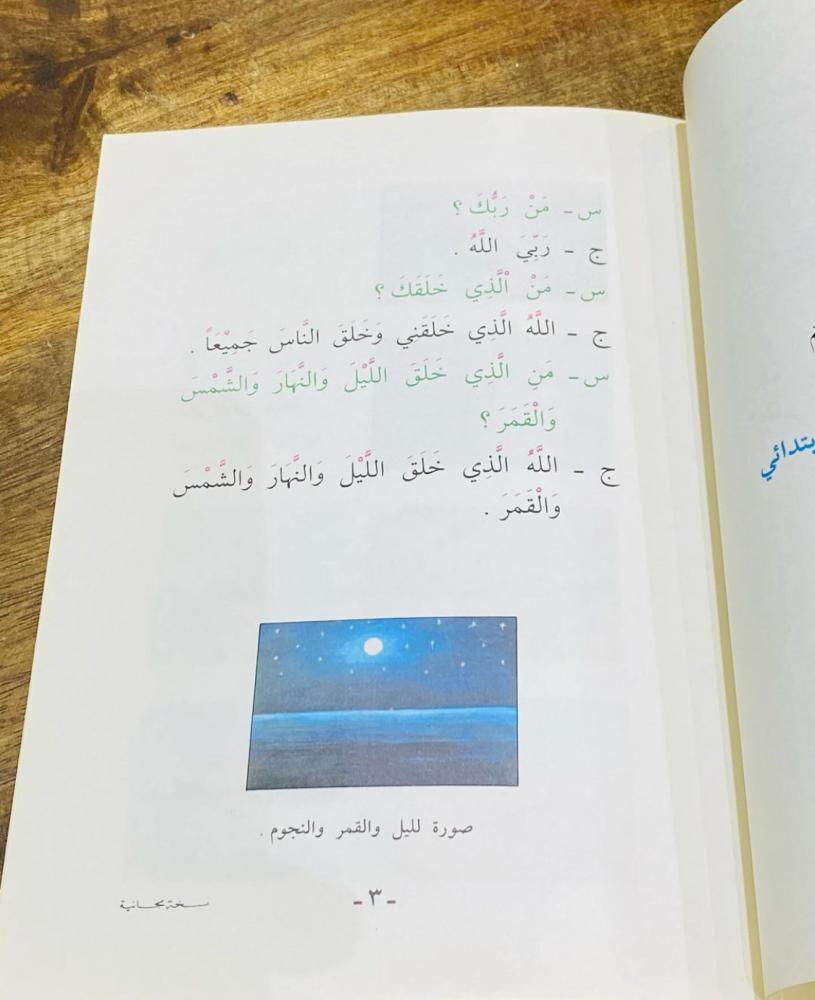 س - مَنْ رَبُّكَ ؟
ج - رَبِّيَ اللَّهُ .
س - مَنْ الَّذِي خَلَقَكَ ؟
ج - اللَّهُ الَّذِي خَلَقَني وَخَلَقَ النَّاسَ جَمِيْعَاً .
س - مَنِ الَّذِي خَلَقَ اللَّيْلَ وَالنَّهَارَ وَالشَّمْسَ
وَالْقَمَرَ ؟
ج - اللَّهُ الَّذِي خَلَقَ اللَّيْلَ وَالنَّهَارَ وَالشَّمْسَ
وَالْقَمَرَ .
صورة لليل والقمر والنجوم .
- ٣ -